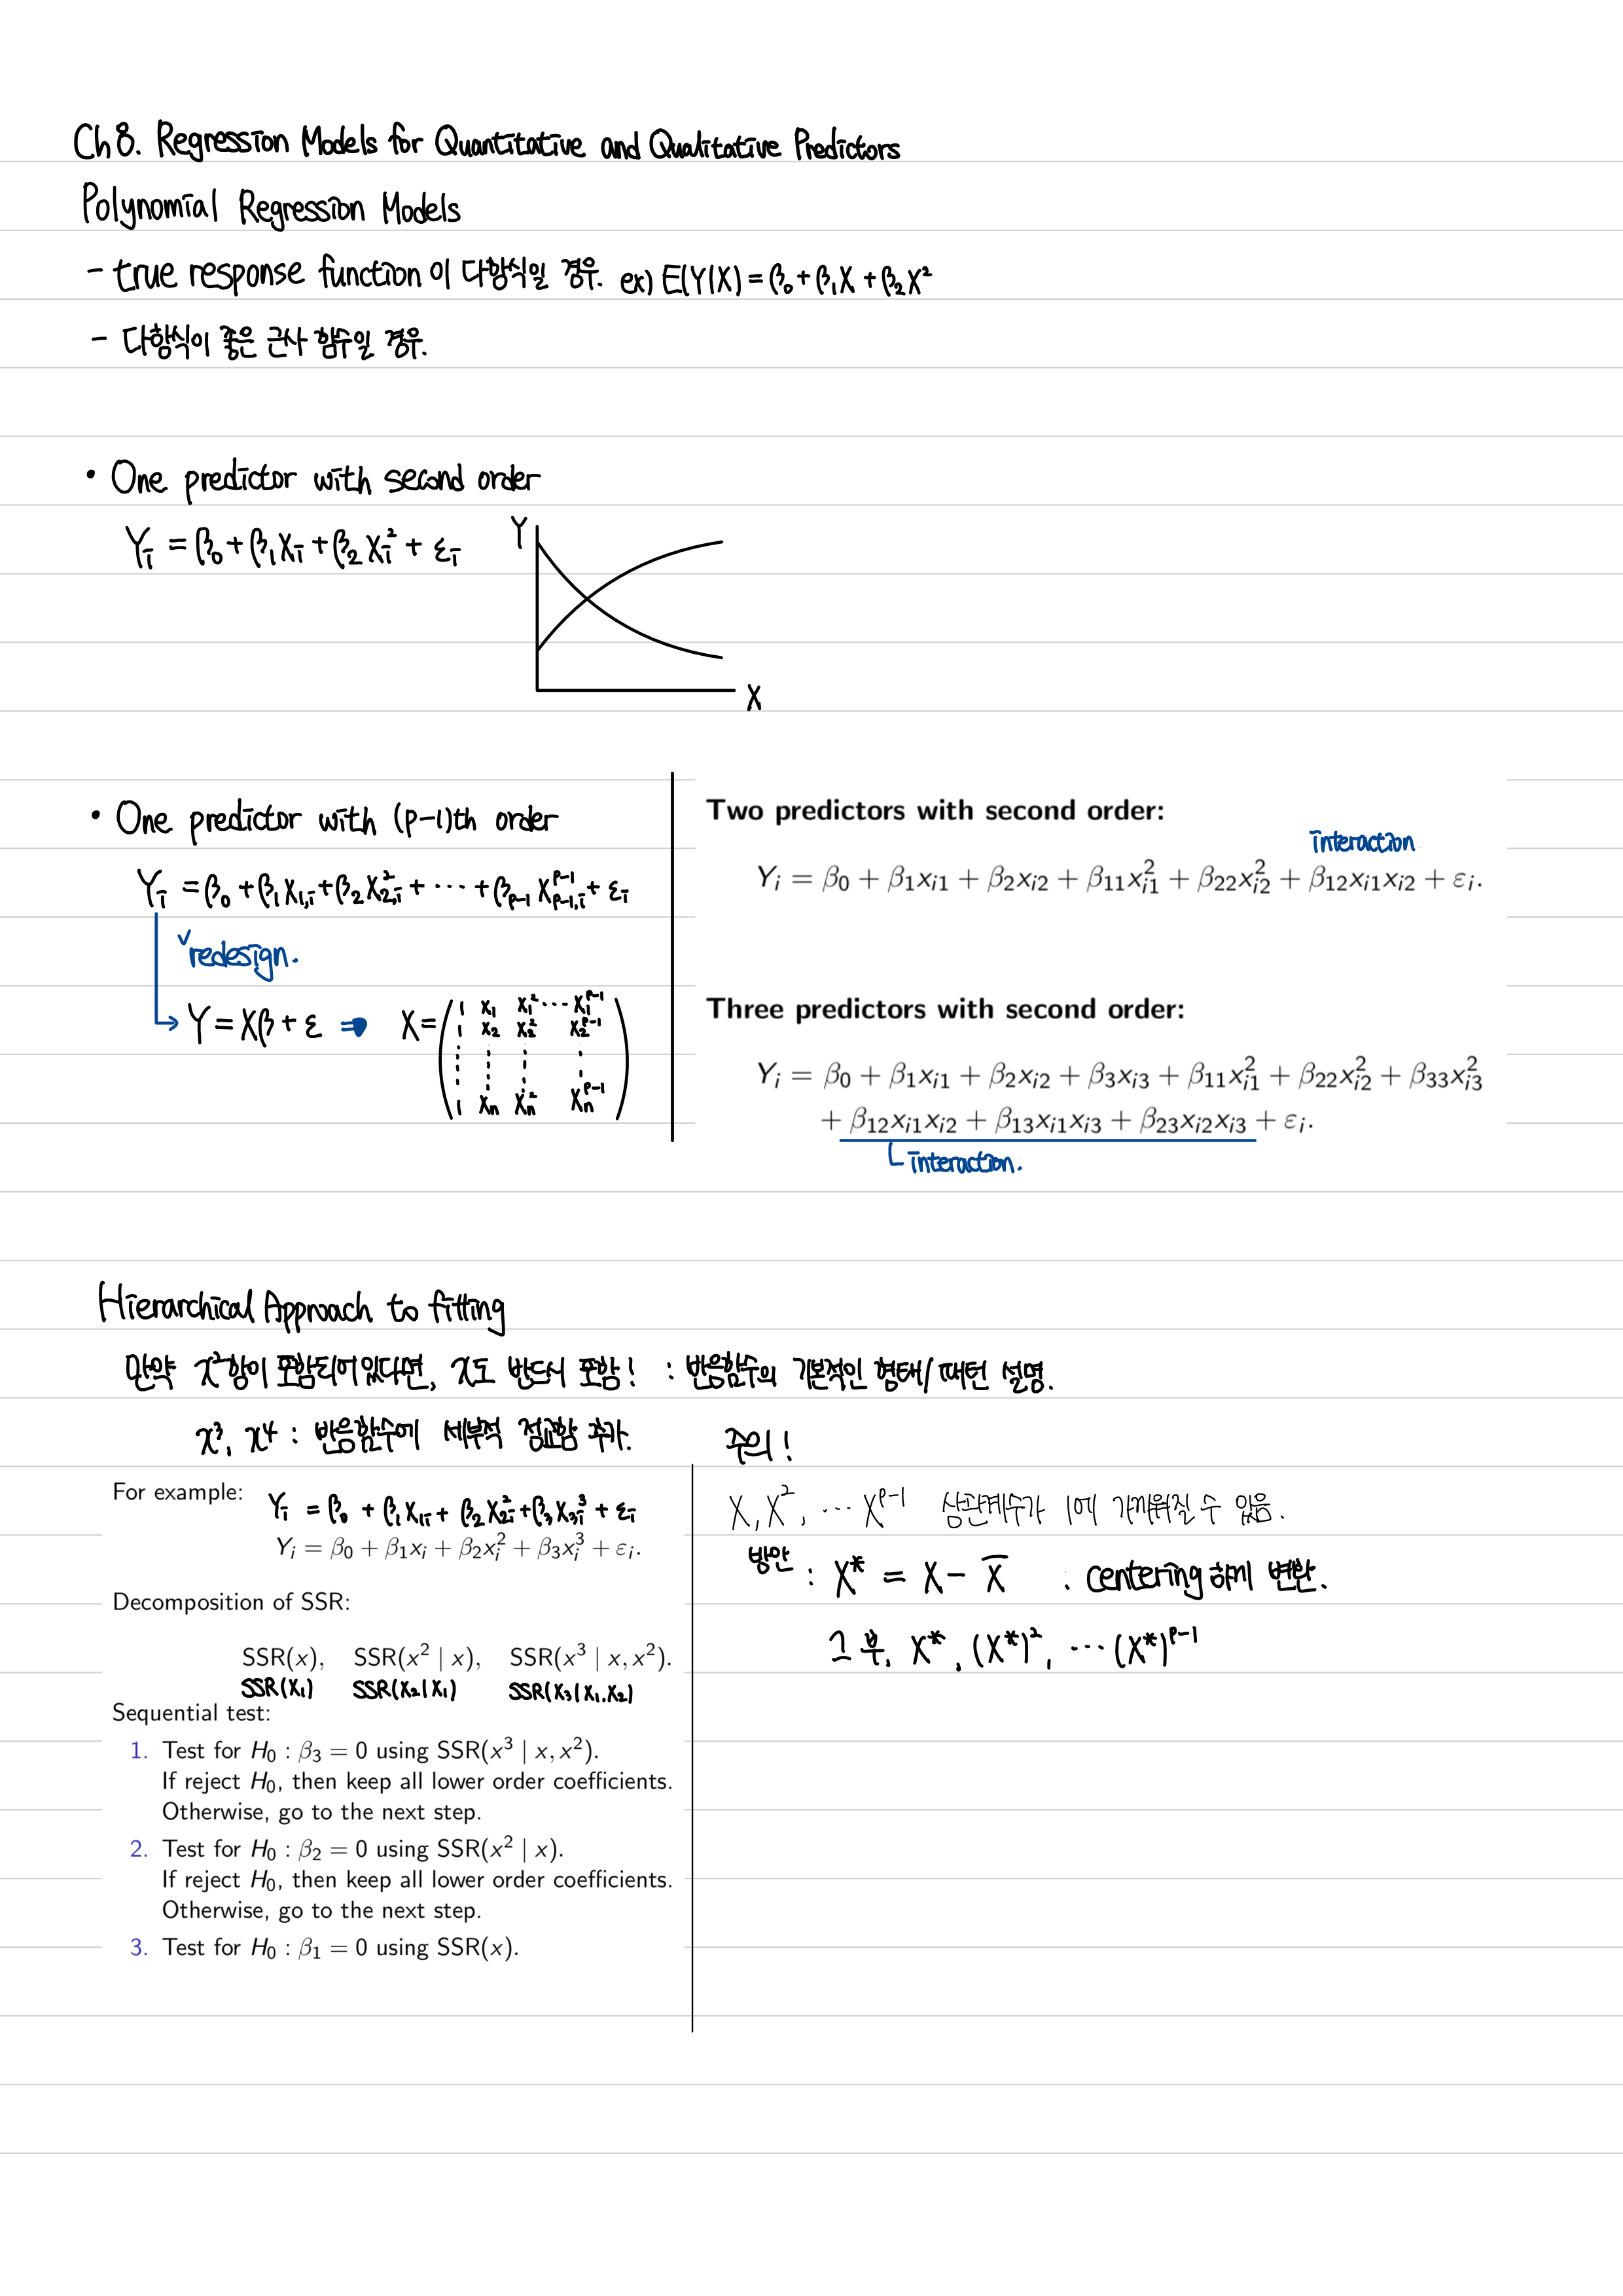 Ch 8. Regression Models for Quantitative and Qualitative Predictors
Polynomial Regression Models
- true response function 이 다항식일 경우. ex) E(Y|X) = β₀ + β₁X + β₂X²
- 다항식이 좋은 근사 함수일 경우.
• One predictor with second order
Yᵢ = β₀ + β₁Xᵢ + β₂Xᵢ² + εᵢ
Y
X
• One predictor with (p-1)th order
Yᵢ = β₀ + β₁X₁,ᵢ + β₂X₂,ᵢ² + ··· + βp-1 Xp-1,ᵢ^p-1 + εᵢ
redesign.
Y = Xβ + ε ⇒ X =
1 x₁ x₁² ··· x₁^p-1
1 x₂ x₂² x₂^p-1
1 xₙ xₙ² xₙ^p-1
Two predictors with second order:
interaction
Yᵢ = β₀ + β₁xᵢ₁ + β₂xᵢ₂ + β₁₁xᵢ₁² + β₂₂xᵢ₂² + β₁₂xᵢ₁xᵢ₂ + εᵢ.
Three predictors with second order:
Yᵢ = β₀ + β₁xᵢ₁ + β₂xᵢ₂ + β₃xᵢ₃ + β₁₁xᵢ₁² + β₂₂xᵢ₂² + β₃₃xᵢ₃²
+ β₁₂xᵢ₁xᵢ₂ + β₁₃xᵢ₁xᵢ₃ + β₂₃xᵢ₂xᵢ₃ + εᵢ.
interaction.
Hierarchical Approach to fitting
만약 x²항이 포함되어있다면, x도 반드시 포함! : 반응함수의 기본적인 형태/패턴 설명.
x³, x⁴ : 반응함수에 세부적 정교함 추가.
For example:
Yᵢ = β₀ + β₁X₁ᵢ + β₂X₂ᵢ² + β₃X₃ᵢ³ + εᵢ
Yᵢ = β₀ + β₁xᵢ + β₂xᵢ² + β₃xᵢ³ + εᵢ.
Decomposition of SSR:
SSR(x), SSR(x² | x), SSR(x³ | x, x²).
SSR(X₁) SSR(X₂|X₁) SSR(X₃|X₁.X₂)
Sequential test:
1. Test for H₀ : β₃ = 0 using SSR(x³ | x, x²).
If reject H₀, then keep all lower order coefficients.
Otherwise, go to the next step.
2. Test for H₀ : β₂ = 0 using SSR(x² | x).
If reject H₀, then keep all lower order coefficients.
Otherwise, go to the next step.
3. Test for H₀ : β₁ = 0 using SSR(x).
주의!
X, X², ··· X^p-1 상관계수가 1에 가까워질 수 있음.
방안 : X* = X - X̄ : centering하게 변환.
그 후, X*, (X*)², ··· (X*)^p-1